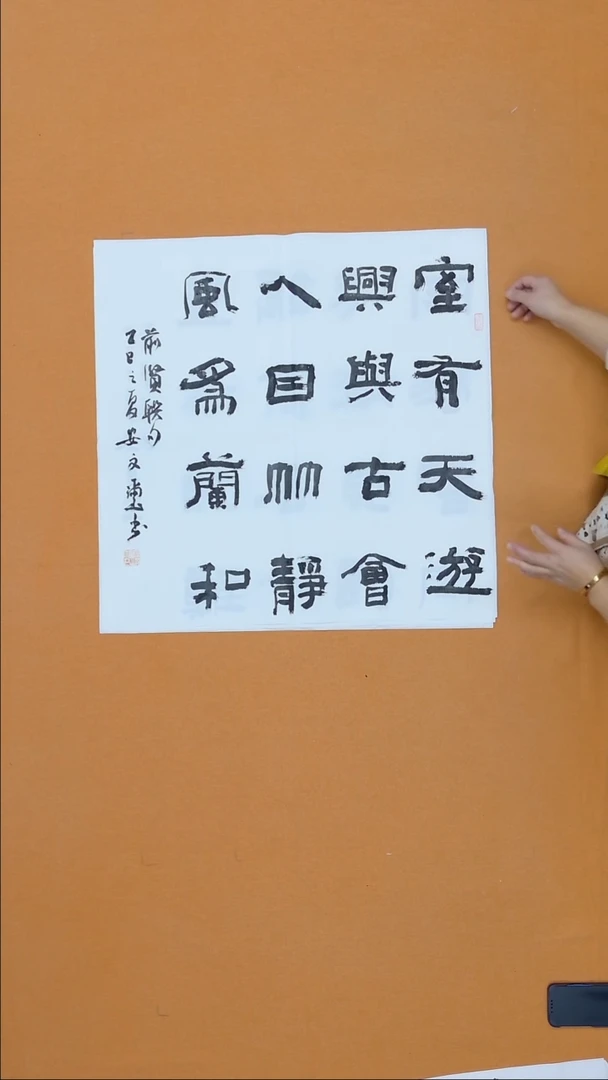 室有天遊
興與古會
人因竹靜
風為蘭和
前賢聯句
乙巳之夏安文書